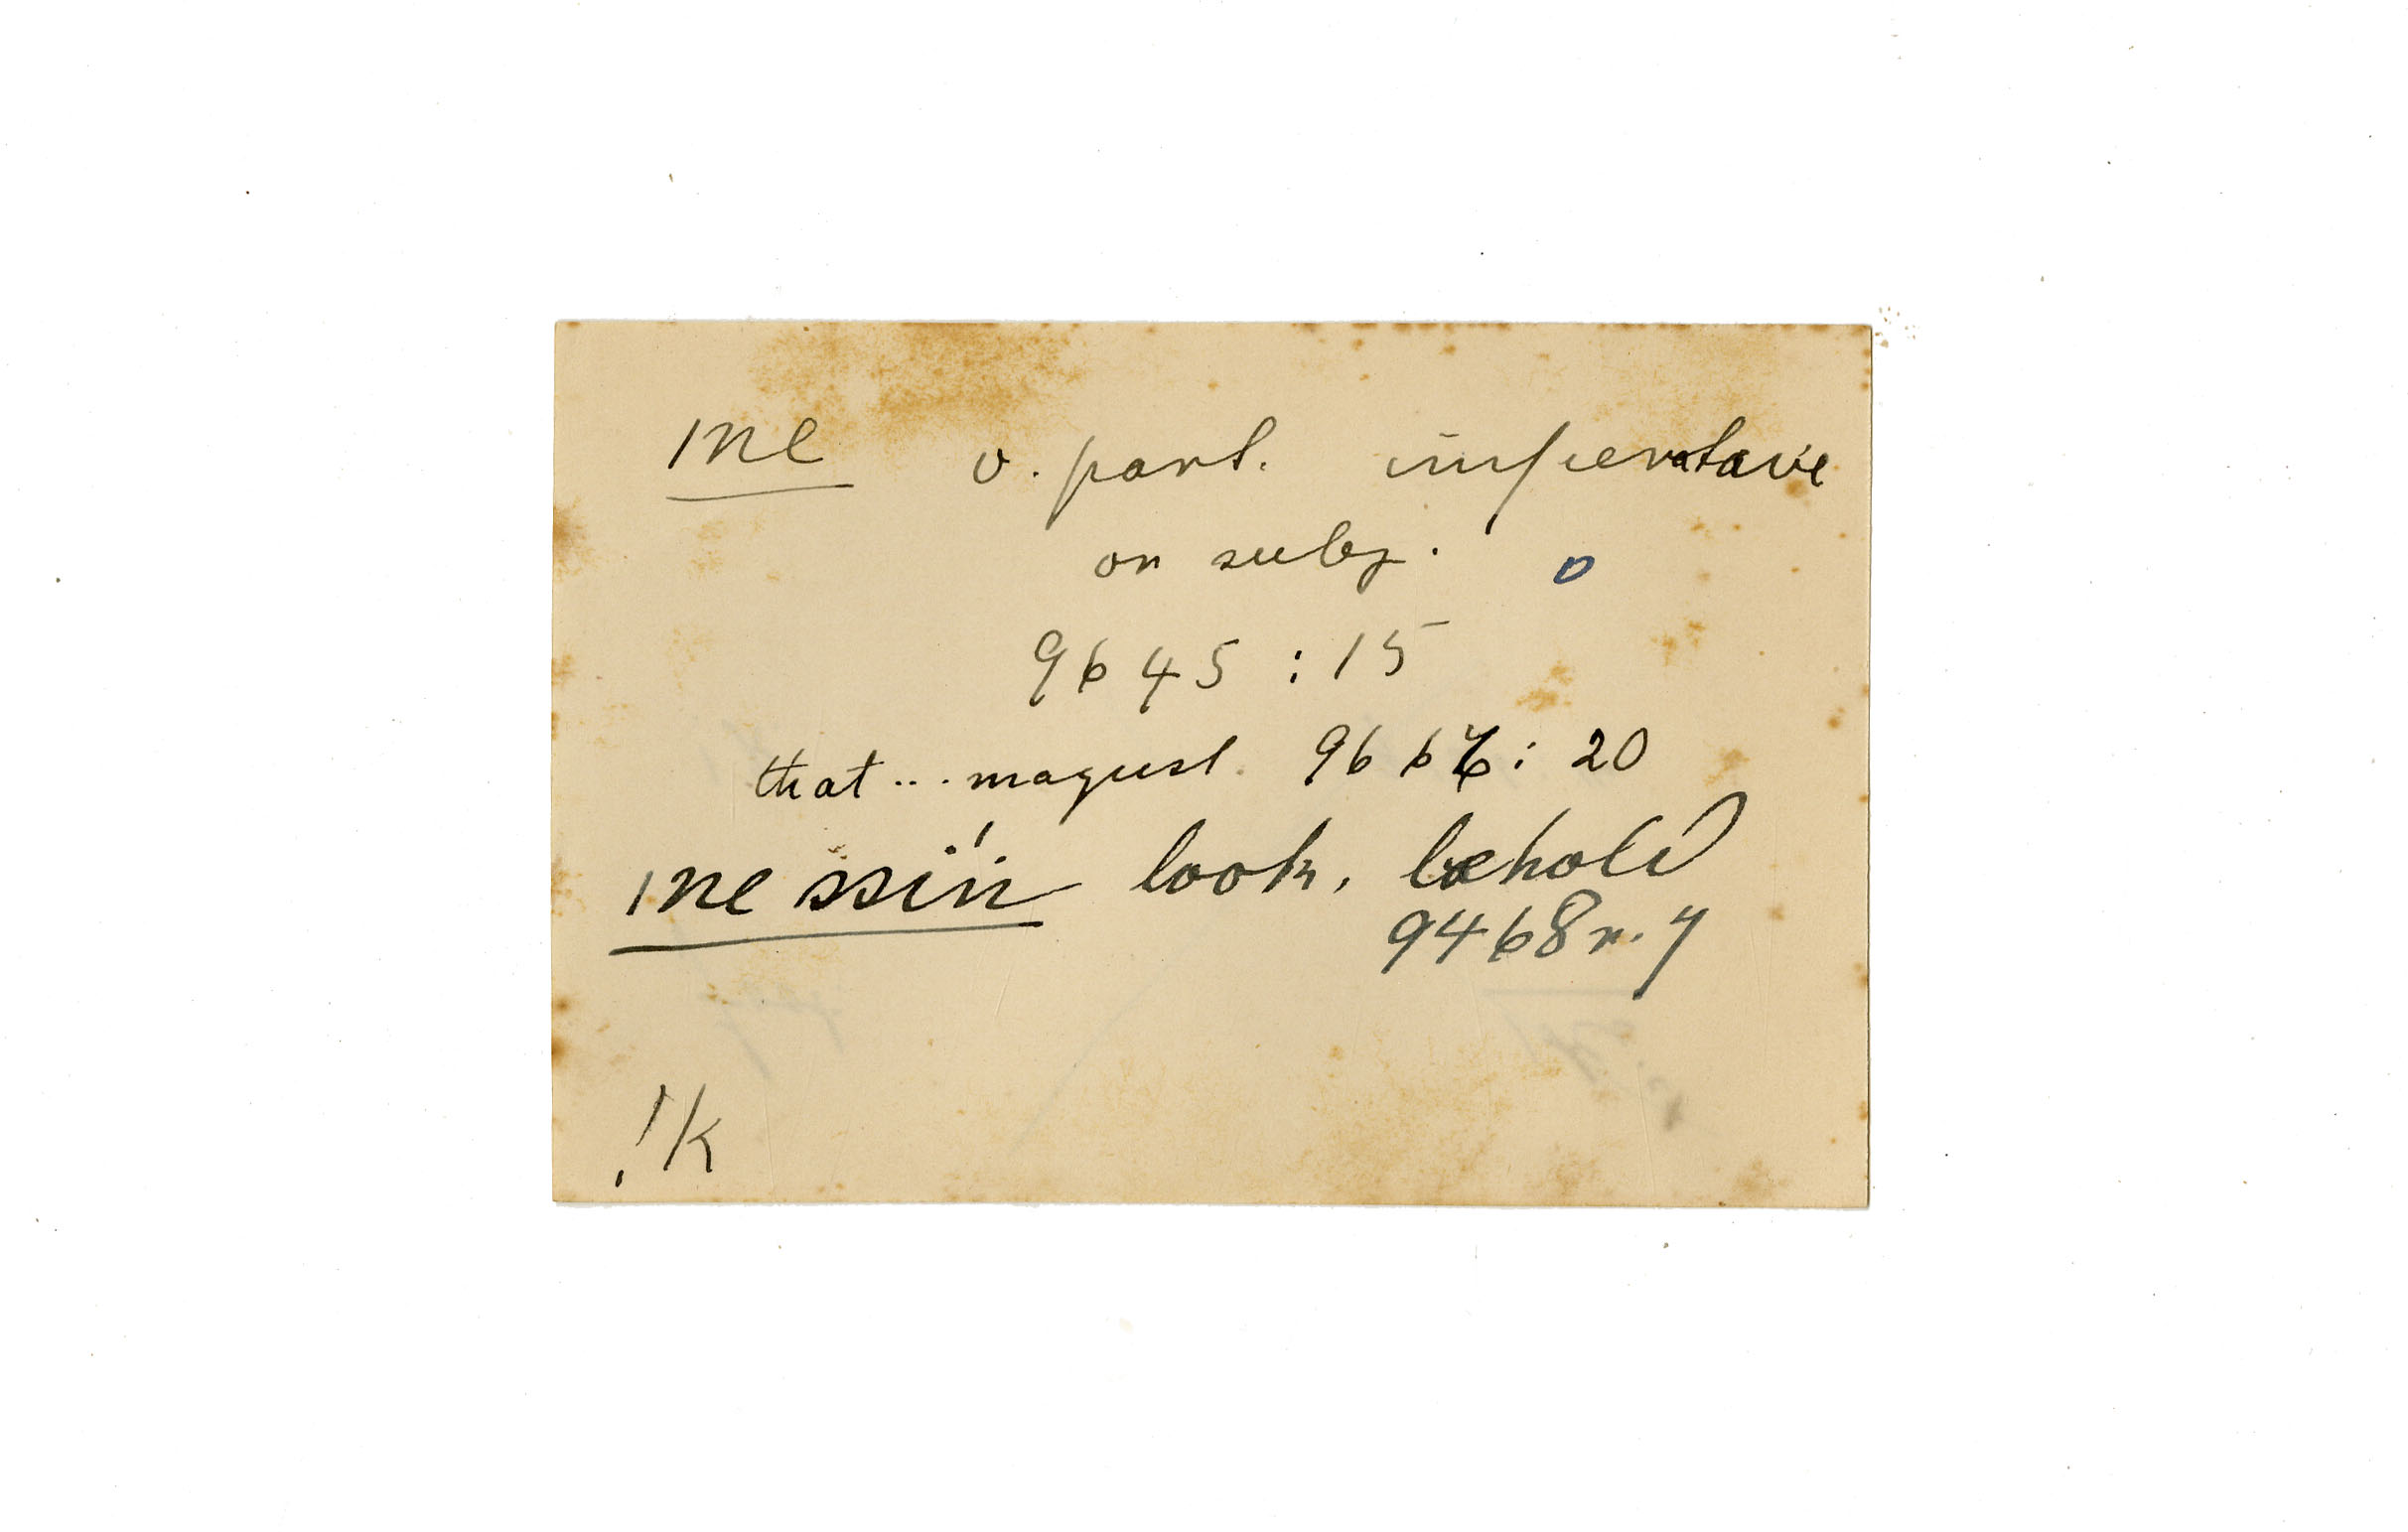 ıne v. part. imperative
or subj. o
9645 : 15
that ... mayest 9667 : 20
ıne ssı́ń look, behold
9468 n. 7
!k